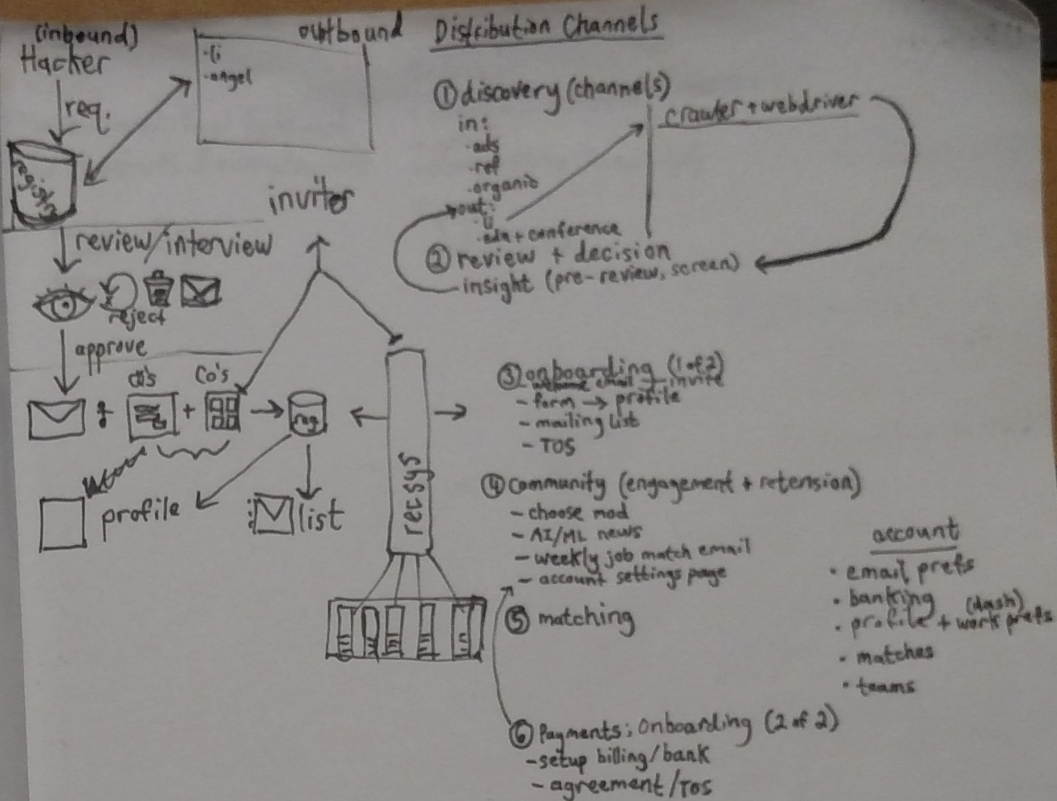 (inbound)
Hacker
req.
outbound
·li
·angel
inviter
review/interview
reject
approve
Co's
+
reg
profile
list
recsys
Distribution Channels
① discovery (channels)
in:
·ads
·ref
·organic
out:
·li
+ conference
crawler + webdriver
② review + decision
insight (pre-review, screen)
③ onboarding (1 of 2)
welcome email + invite
- form → profile
- mailing list
- TOS
④ community (engagement + retension)
- choose mod
- AI/ML news
- weekly job match email
- account settings page
⑤ matching
⑥ Payments: Onboarding (2 of 2)
- setup billing/bank
- agreement/TOS
account
· email prefs
· banking
(dash)
· profile + work prefs
· matches
· teams